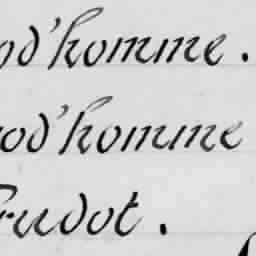 od'homme.
rod'homme
rudot.